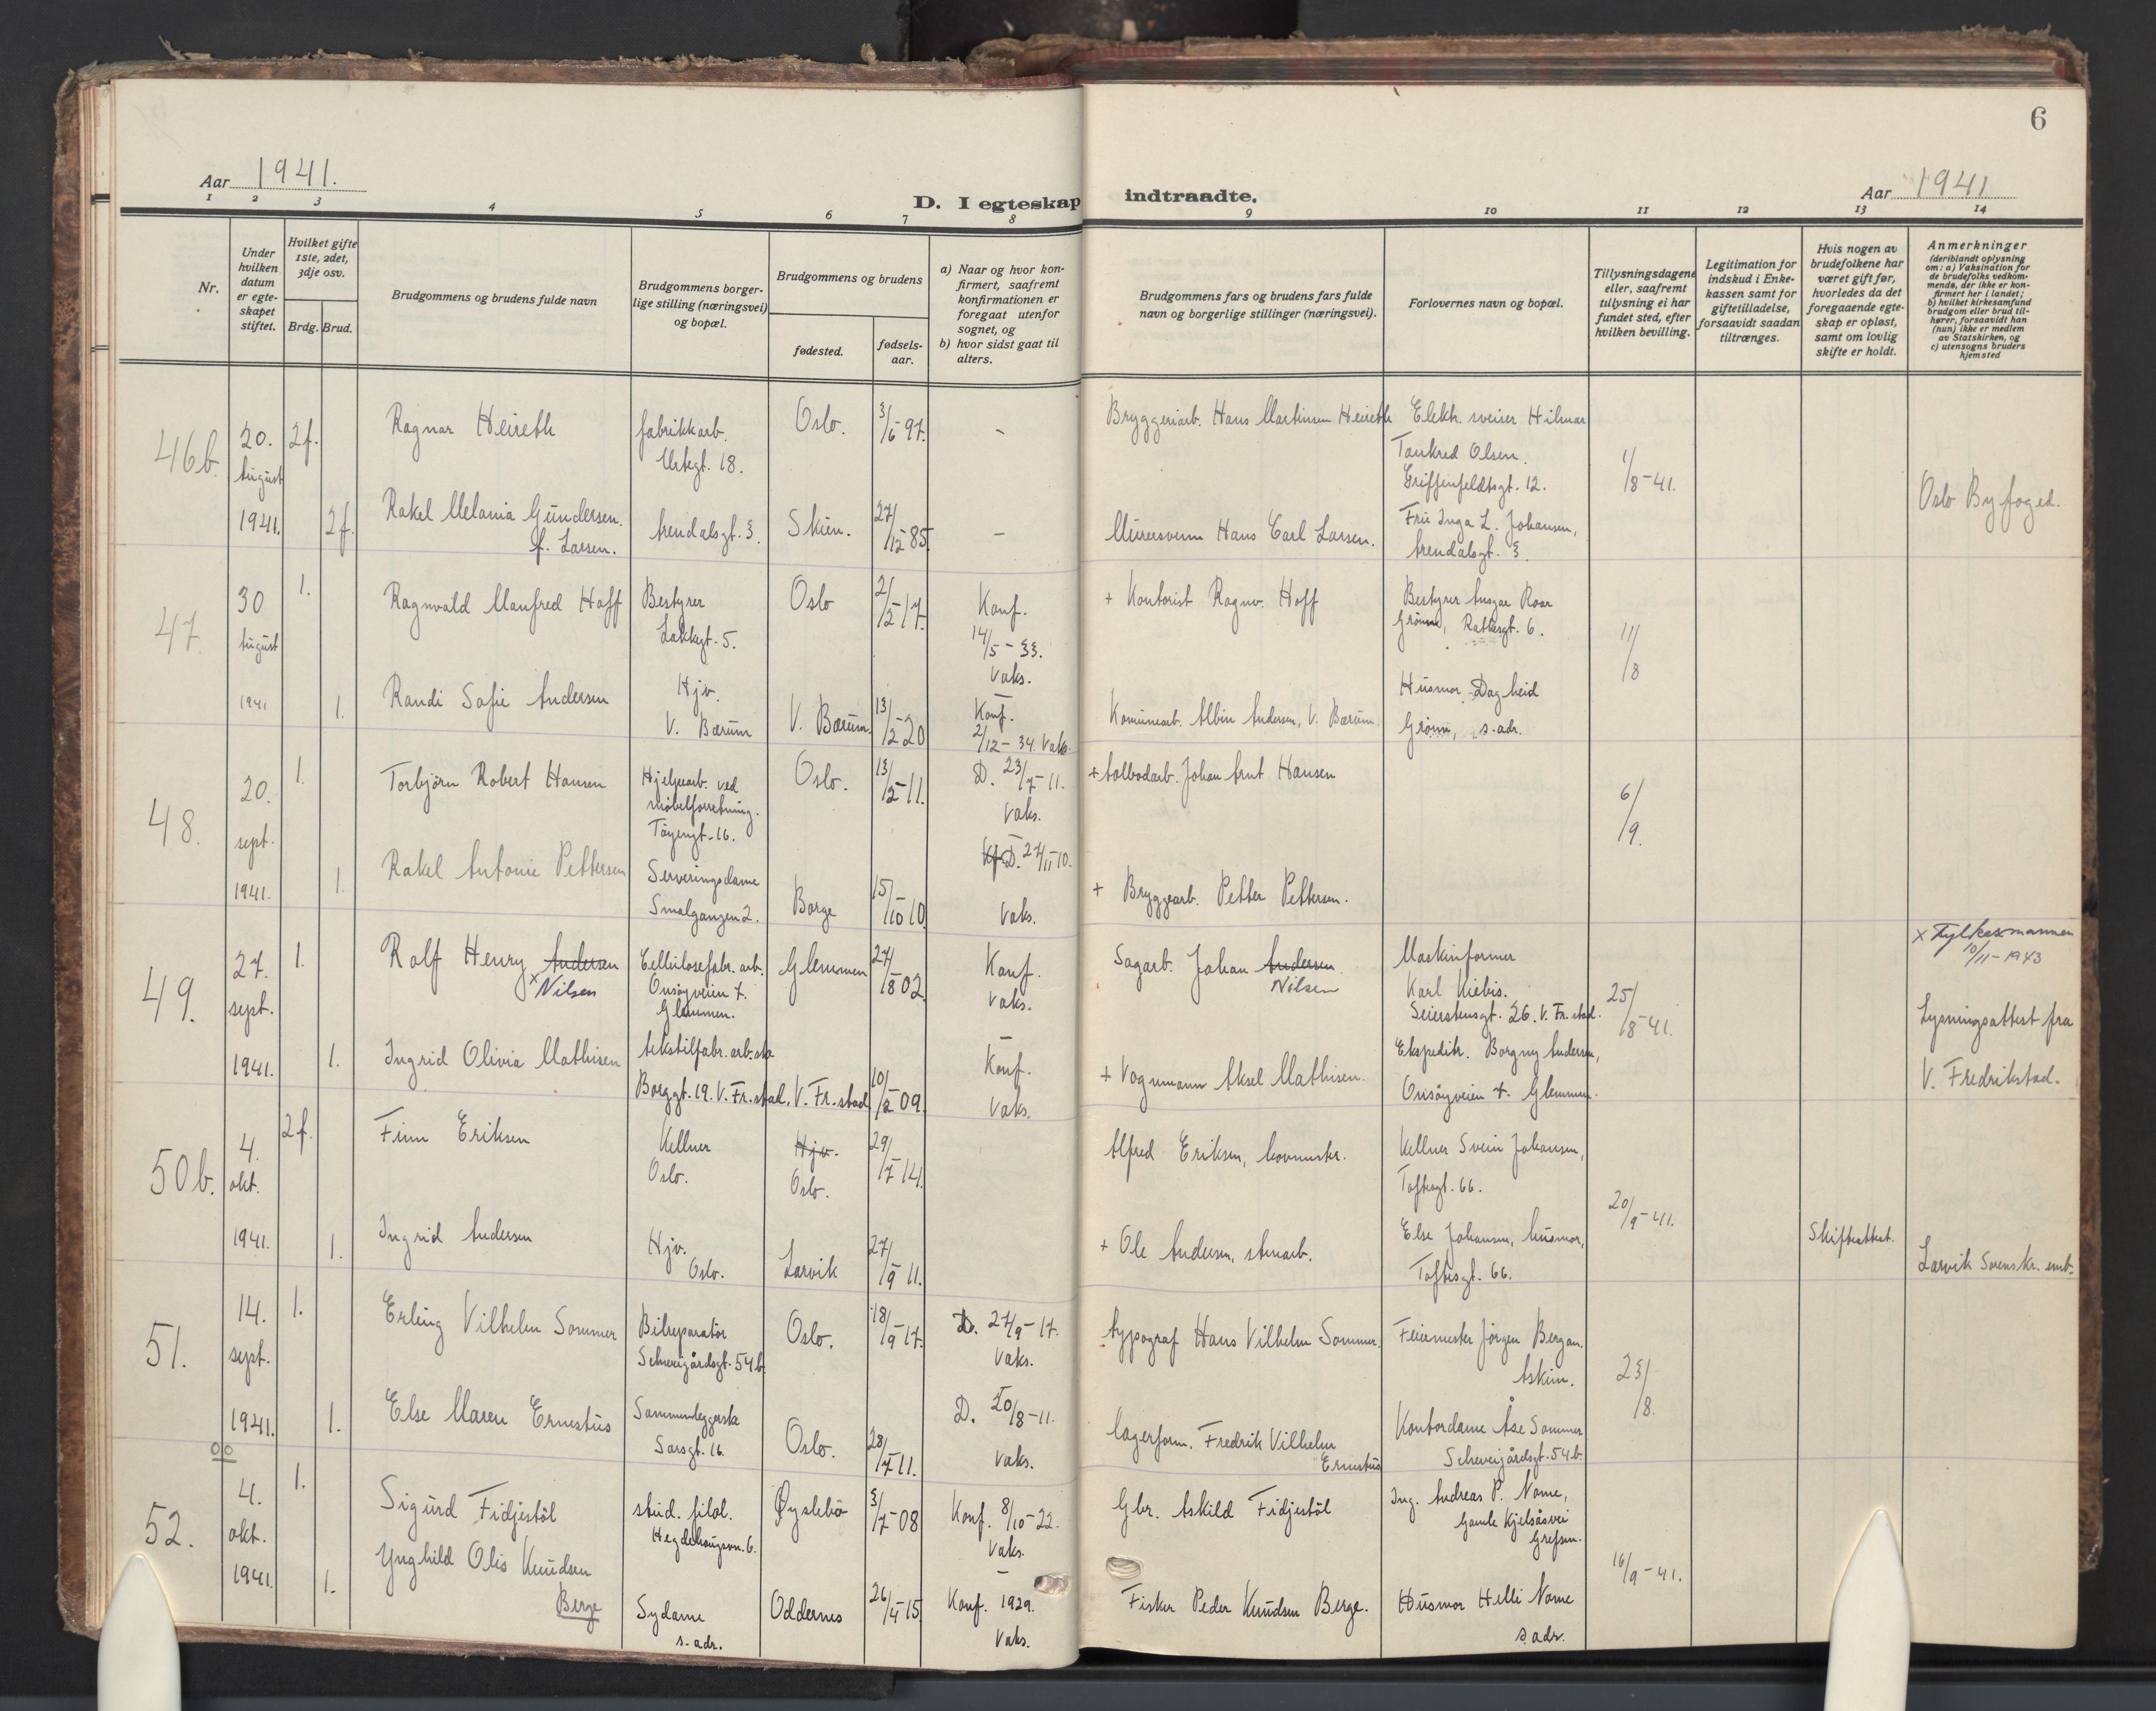 6
Aar 1941.
D. I egteskap indtraadte.
Aar 1941
1 2 3 4 5 6 7 8 9 10 11 12 13 14
Nr.
Under hvilken datum er egteskapet stiftet.
Hvilket gifte 1ste, 2det, 3dje osv.
Brdg. Brud.
Brudgommens og brudens fulde navn
Brudgommens borgerlige stilling (næringsvei) og bopæl.
Brudgommens og brudens
fødested.
fødselsaar.
a) Naar og hvor konfirmert, saafremt konfirmationen er foregaat utenfor sognet, og
b) hvor sidst gaat til alters.
Brudgommens fars og brudens fars fulde navn og borgerlige stillinger (næringsvei).
Forlovernes navn og bopæl.
Tillysningsdagene eller, saafremt tillysning ei har fundet sted, efter hvilken bevilling.
Legitimation for indskud i Enkekassen samt for giftetilladelse, forsaavidt saadan tiltrænges.
Hvis nogen av brudefolkene har været gift før, hvorledes da det foregaaende egteskap er opløst, samt om lovlig skifte er holdt.
Anmerkninger (deriblandt oplysning om: a) Vaksination for de brudefolks vedkommende, der ikke er konfirmert her i landet; b) hvilket kirkesamfund brudgom eller brud tilhører, forsaavidt han (hun) ikke er medlem av Statskirken, og c) utensogns bruders hjemsted
46b. 20. August 1941. 2f. Ragnar Heireth fabrikkarb. Urtegt. 18. Oslo. 3/6-97. - Bryggeriarb. Hans Martinsen Heireth Elektr. sveiser Hilmar Tankred Olsen. Griffenfeldtsgt. 12. 1/8-41.
2f. Rakel Melania Gundersen. f. Larsen. Arendalsgt. 3. Skien. 27/12-85. - Murersvenn Hans Carl Larsen. Fru Inga L. Johansen, Arendalsgt. 3. Oslo Byfoged.
47. 30 August 1941 1. Ragnvald Manfred Hoff Bestyrer Lakkegt. 5. Oslo 2/2-17. Konf. 14/5-33. Vaks. + Kontorist Ragnv. Hoff Bestyrer Ansgar Roar Grønn, Ratkesgt. 6. 11/8
1. Randi Sofie Andersen Hjv. V. Bærum V. Bærum. 13/2-20 Konf. 2/12-34. Vaks. Komunearb. Albin Andersen, V. Bærum. Husmor Dagheid Grønn, s. adr.
48. 20. sept. 1941. 1. Torbjørn Robert Hansen Hjelpearb. ved møbelforretning. Tøyengt. 16. Oslo. 13/2-11. D. 23/7-11. Vaks. + Tolbodarb. Johan Arnt Hansen 6/9.
1. Rakel Antonie Pettersen Serveringsdame Smalgangen 2. Borge 15/10 10 Kf. D. 27/11-10. Vaks. + Bryggearb. Petter Pettersen.
49. 27. sept. 1941. 1. Rolf Henry Andersen x Nilsen Cellulosefabr. arb. Onsøyveien 7. Glemmen. Glemmen 27/8 02. Konf. Vaks. Sagarb. Johan Andersen Nilsen Maskinformer Karl Kiebis. Seierstensgt. 26. V. Fr.stad. 25/8-41. x Fylkesmannen 10/11-1943
1. Ingrid Olivia Mathisen tekstilfabr. arb.ske Borggt. 19. V. Fr.stad. V. Fr.stad 10/2 09. Konf. Vaks. + Vognmann Aksel Mathisen. Ekspeditr. Borgny Andersen, Onsøyveien 7. Glemmen. Lysningsattest fra V. Fredrikstad.
50b. 4. okt. 1941. 2f. Finn Eriksen Kellner Oslo. Hjv. Oslo. 29/7-14. Alfred Eriksen, hovmester. Kellner Svein Johansen, Toftesgt. 66. 20/9-41.
1. Ingrid Andersen Hjv. Oslo. Larvik 27/9 11. + Ole Andersen, stenarb. Else Johansen, husmor, Toftesgt. 66. Skifteattest. Larvik Sorenskr. emb.
51. 14. sept. 1941. 1. Erling Vilhelm Sommer Bilreparatør Schweigårdsgt. 54b. Oslo. 18/9-17. D. 27/9-17. Vaks. typograf Hans Vilhelm Sommer. Feiemester Jørgen Bergan. Askim. 23/8.
1. Else Maren Ernestus Sammenleggerske Sarsgt. 16. Oslo. 28/7 11. D. 20/8-11. Vaks. lagerform. Fredrik Vilhelm Ernestus Kontordame Åse Sommer Schweigårdsgt. 54b.
oo
52. 4. okt. 1941. 1. Sigurd Fidjestøl stud. filol. Hegdehaugsvn. 6. Øyslebø 3/7-08 Konf. 8/10-22. Vaks. Gbr. Askild Fidjestøl Ing. Andreas P. Nome, Gamle Kjelsåsvei Grefsen. 16/9-41.
1. Ynghild Olis Knudsen Berge Sydame s. adr. Oddernes 26/4-15. Konf. 1929. Vaks. Fisker Peder Knudsen Berge. Husmor Helli Nome s. adr.